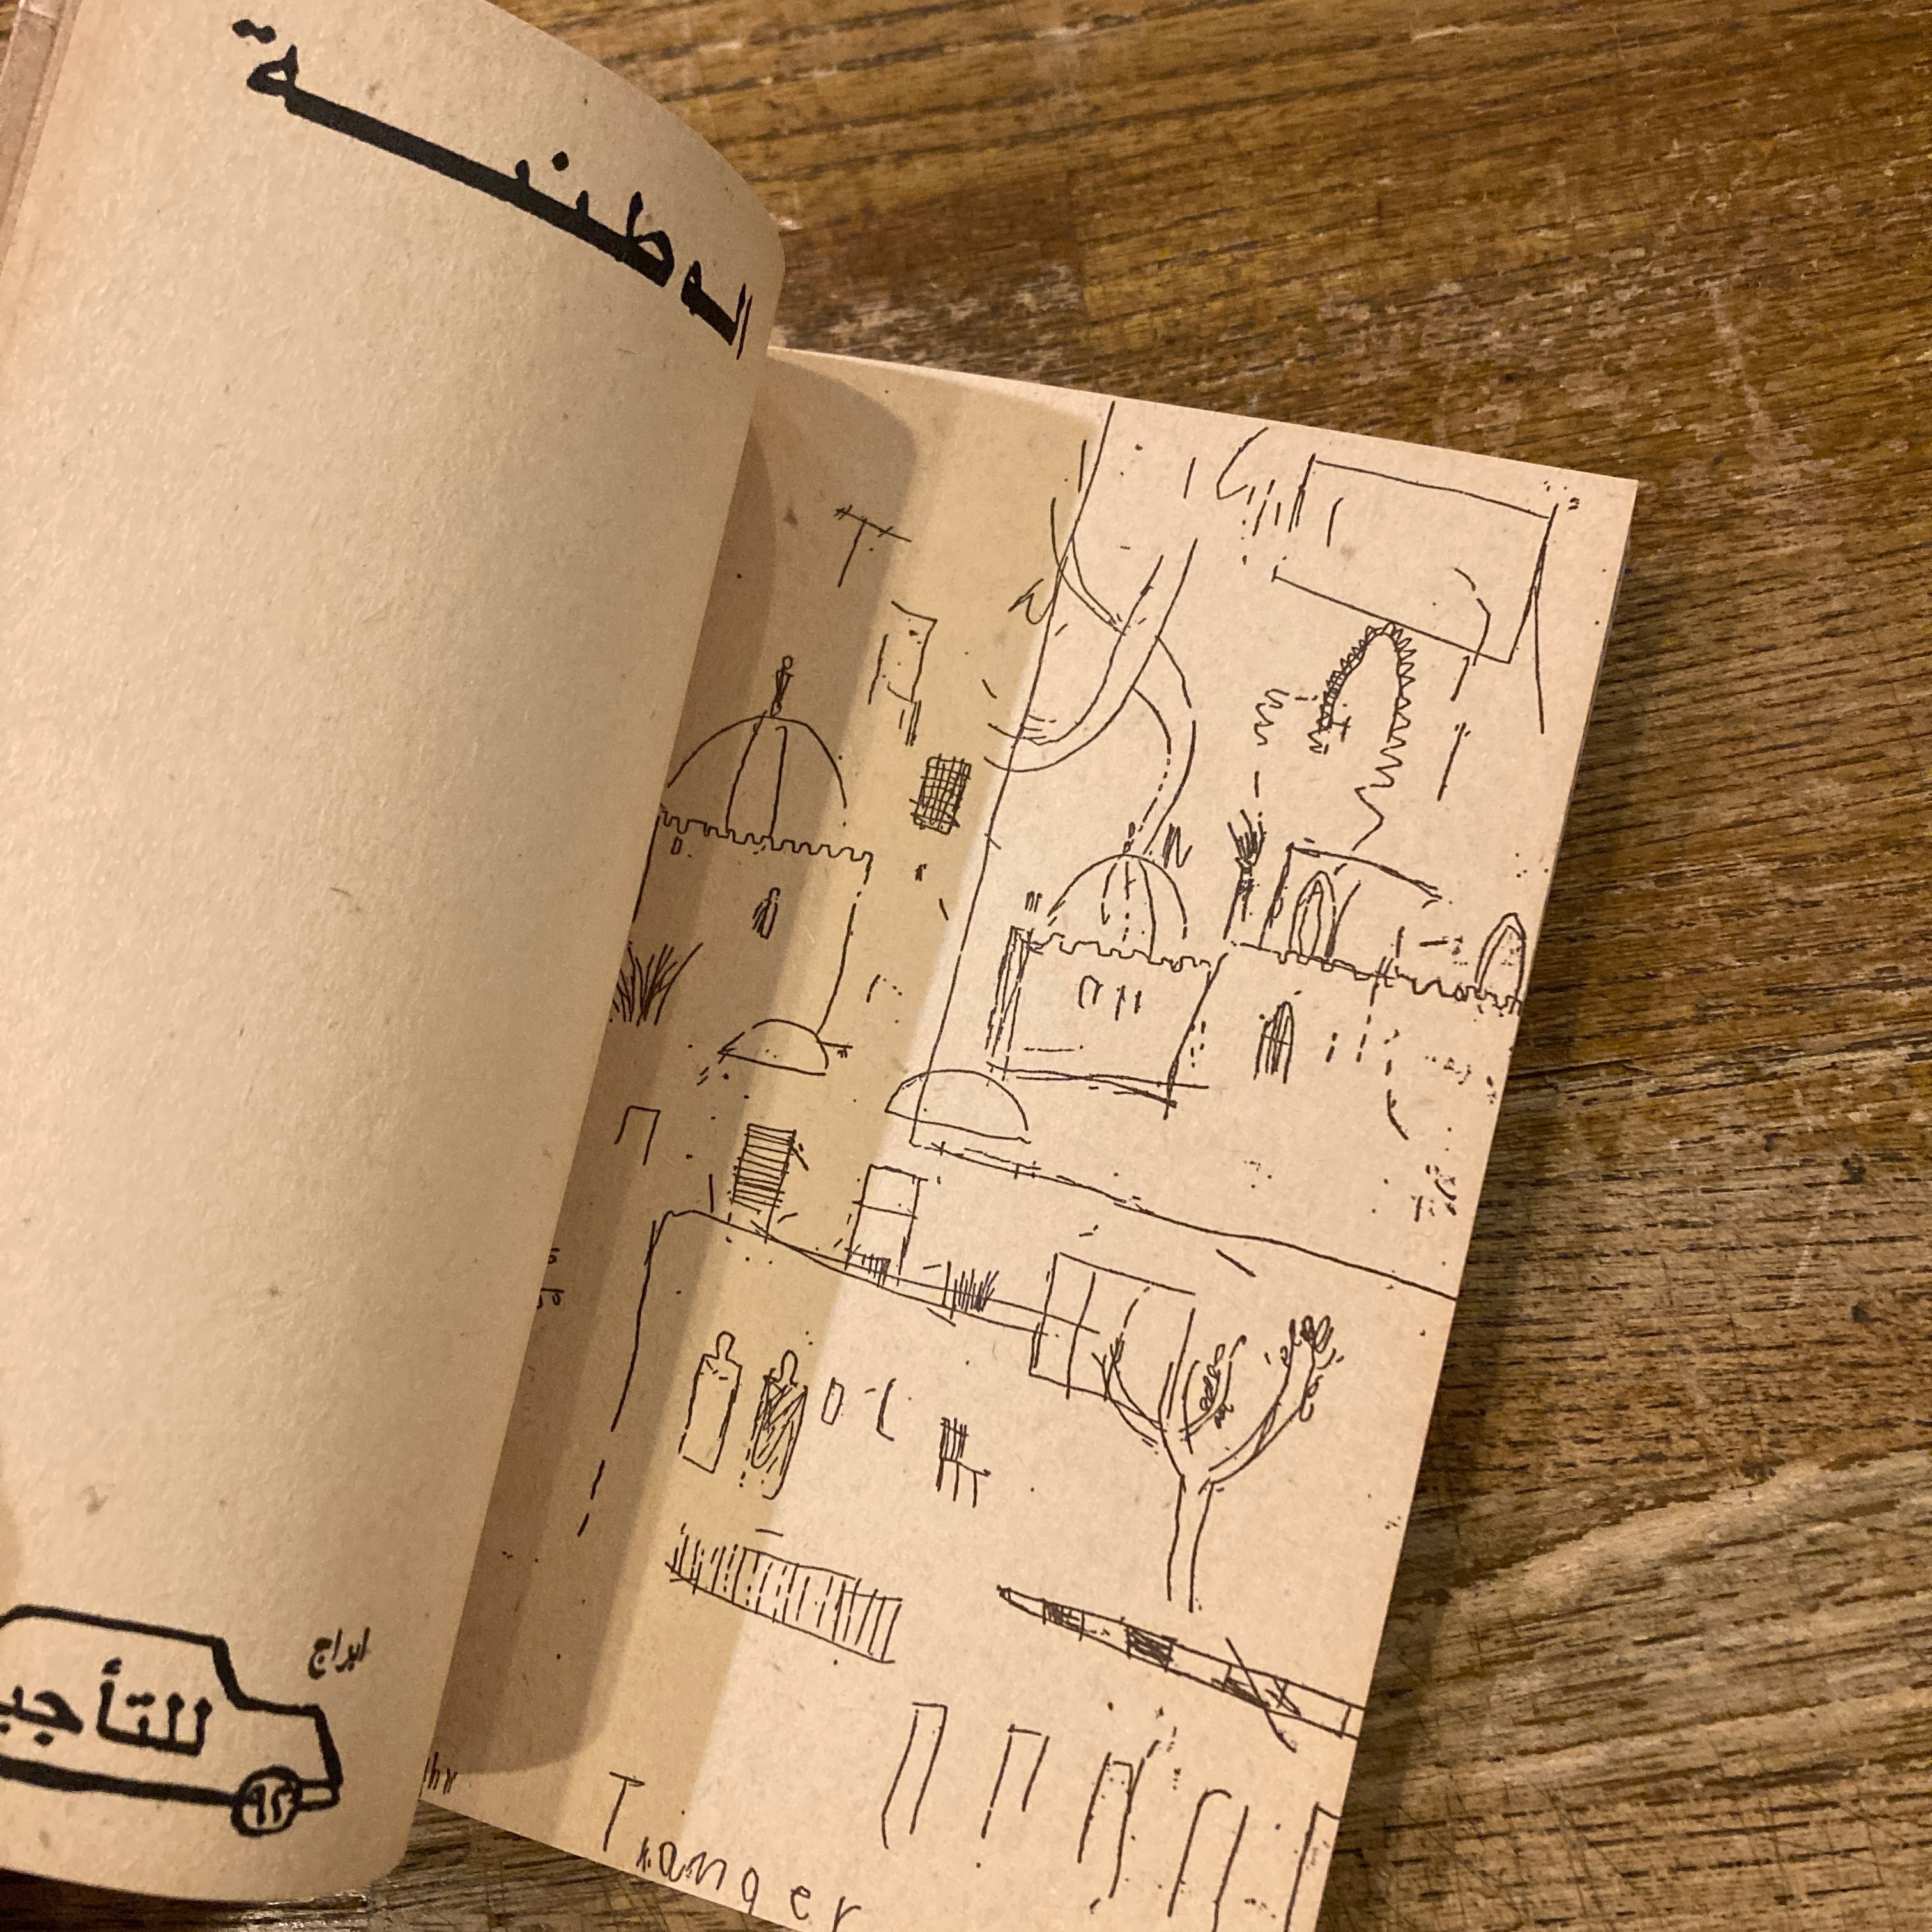 الوطنيــــة
ابراج
للتأجير
٩٢
Tanger